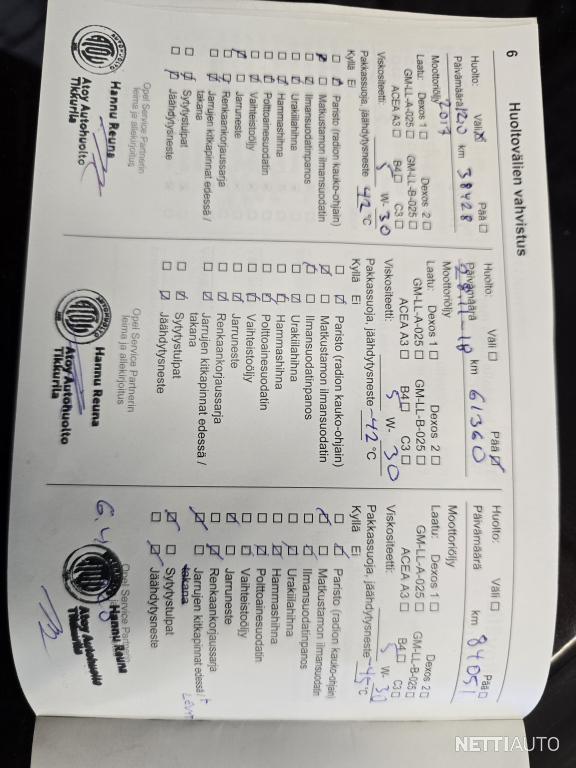 6
Huoltovälien vahvistus
Huolto: Väli ☒ Pää ☐
Päivämäärä km 38428
2017
Moottoriöljy
Laatu: Dexos 1 ☐ Dexos 2 ☐
GM-LL-A-025 ☐ GM-LL-B-025 ☐
ACEA A3 ☐ B4 ☐ C3 ☐
Viskositeetti: 5 W- 30
Pakkassuoja, jäähdytysneste -42 °C
Kyllä Ei
Paristo (radion kauko-ohjain)
Matkustamon ilmansuodatin
Ilmansuodatinpanos
Urakiilahihna
Hammashihna
Polttoainesuodatin
Vaihteistoöljy
Jarruneste
Renkaankorjaussarja
Jarrujen kitkapinnat edessä /
takana
Sytytystulpat
Jäähdytysneste
Opel Service Partnerin
leima ja allekirjoitus
Hannu Reuna
Atoy Autohuolto
Tikkurila
Huolto: Väli ☐ Pää ☒
Päivämäärä km 61360
28.11-18
Moottoriöljy
Laatu: Dexos 1 ☐ Dexos 2 ☐
GM-LL-A-025 ☐ GM-LL-B-025 ☐
ACEA A3 ☐ B4 ☐ C3 ☐
Viskositeetti: 5 W- 30
Pakkassuoja, jäähdytysneste -42 °C
Kyllä Ei
Paristo (radion kauko-ohjain)
Matkustamon ilmansuodatin
Ilmansuodatinpanos
Urakiilahihna
Hammashihna
Polttoainesuodatin
Vaihteistoöljy
Jarruneste
Renkaankorjaussarja
Jarrujen kitkapinnat edessä /
takana
Sytytystulpat
Jäähdytysneste
Opel Service Partnerin
leima ja allekirjoitus
Hannu Reuna
Atoy Autohuolto
Tikkurila
Huolto: Väli ☐ Pää ☐
Päivämäärä km 84051
Moottoriöljy
Laatu: Dexos 1 ☐ Dexos 2 ☐
GM-LL-A-025 ☐ GM-LL-B-025 ☐
ACEA A3 ☐ B4 ☐ C3 ☐
Viskositeetti: 5 W- 30
Pakkassuoja, jäähdytysneste -45 °C
Kyllä Ei
Paristo (radion kauko-ohjain)
Matkustamon ilmansuodatin
Ilmansuodatinpanos
Urakiilahihna
Hammashihna
Polttoainesuodatin
Vaihteistoöljy
Jarruneste
Renkaankorjaussarja
Jarrujen kitkapinnat edessä /
takana
Sytytystulpat
Jäähdytysneste
Opel Service Partnerin
Hannu Reuna
Atoy Autohuolto
Tikkurila
NETTIAUTO